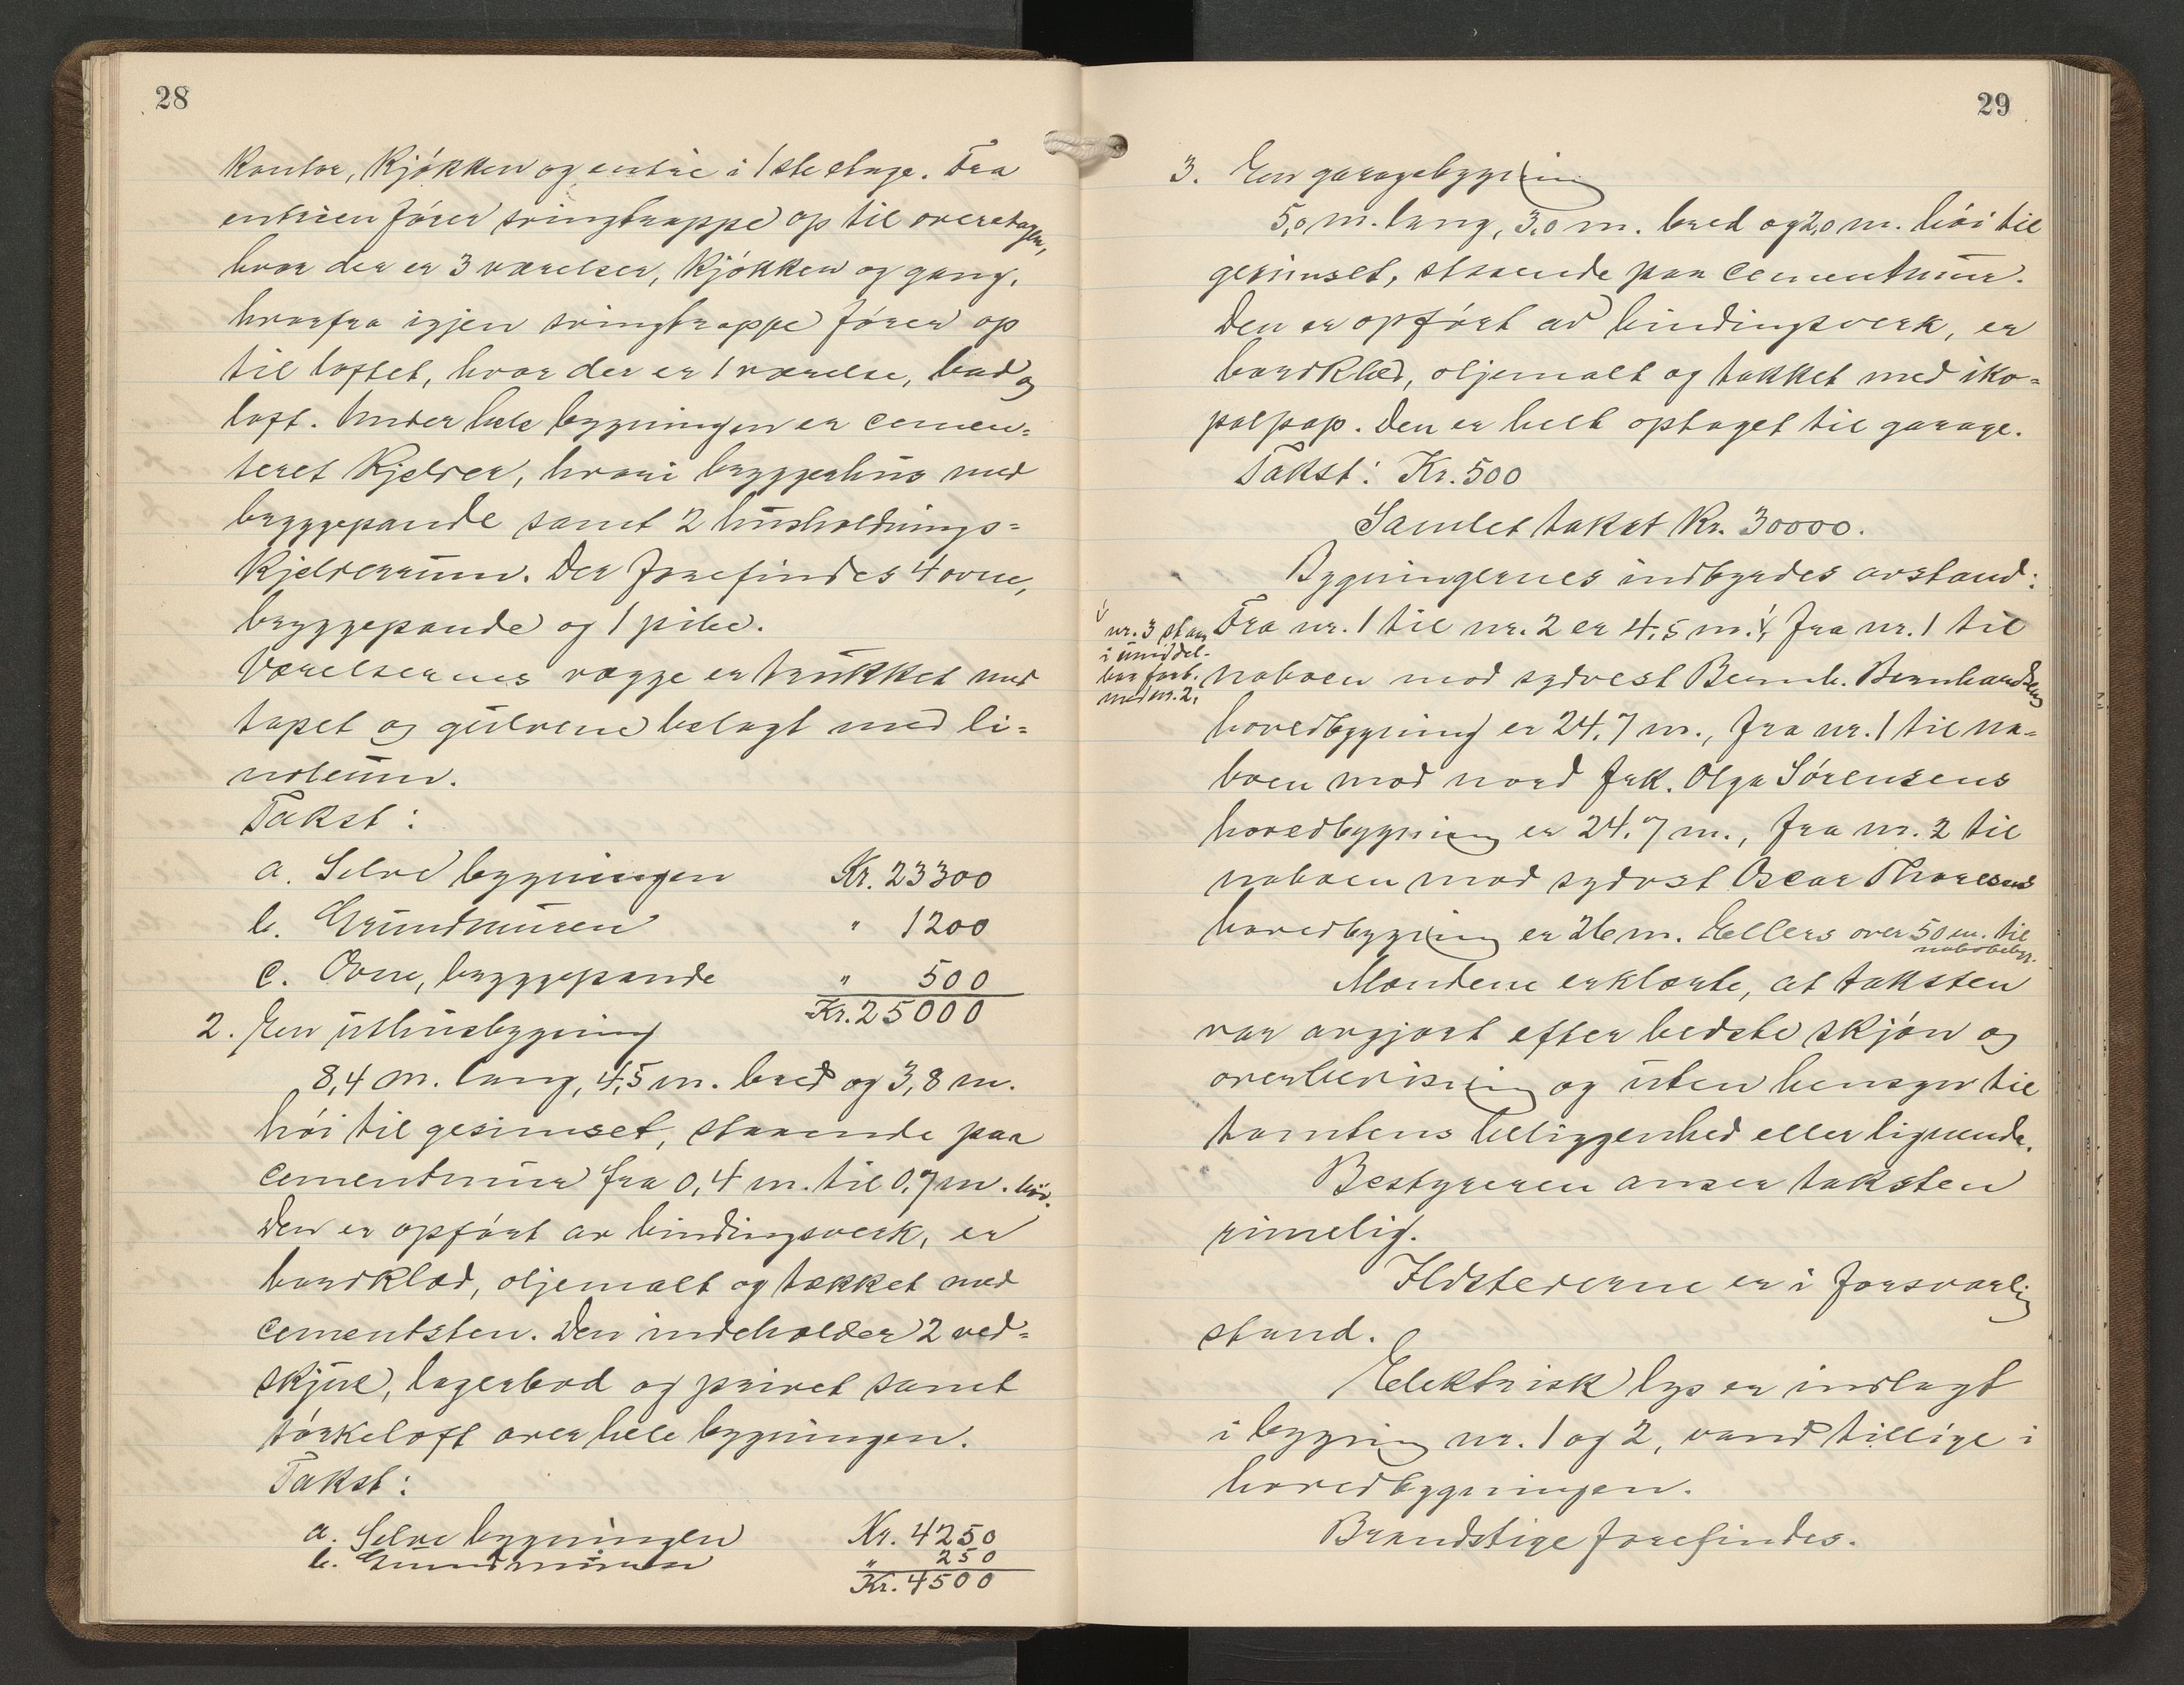 28
Kontor, Kjøkken og entrée i 1ste etage. Fra
entréen fører svingtrappe op til overetagen,
hvor der er 3 værelser, Kjøkken og gang,
hvorfra igjen svingtrappe fører op
til loftet, hvor der er 1 værelse, bad og
loft. Under hele bygningen er cemen=
teret Kjelder, hvori bryggerhus med
bryggepande samt 2 husholdnings=
Kjelderrum. Der forefindes 4 ovne,
bryggepande og 1 pibe.
Værelsernes vægge er trukket med
tapet og gulvene belagt med li=
noleum.
Takst:
a. Selve bygningen Kr. 23300
b. Grundmuren " 1200
c. Ovne, bryggepande " 500
Kr. 25000
2. En uthusbygning
8,4 m. lang, 4,5 m. bred og 3,8 m.
høi til gesimset, staaende paa
cementmur fra 0,4 m. til 0,7 m. høi.
Den er opført av bindingsverk, er
bordklæd, oljemalt og tækket med
cementsten. Den indeholder 2 ved=
skjul, lagerbod og privet samt
tørkeloft over hele bygningen.
Takst:
a. Selve bygningen Kr. 4250
b. Grundmuren " 250
Kr. 4500
29
3. En garagebygning
5,0 m. lang, 3,0 m. bred og 2,0 m. høi til
gesimset, staaende paa cementmur.
Den er opført av bindingsverk, er
bordklæd, oljemalt og tækket med iko=
palpap. Den er helt optaget til garage.
Takst: Kr. 500
Samlet takst Kr. 30000.
Bygningernes indbyrdes avstand:
Fra nr. 1 til nr. 2 er 4,5 m. √, fra nr. 1 til
√ nr. 3 staar
i umiddel-
bar forb.
med nr. 2.
naboen mod sydvest Bernh. Bernhardsens
hovedbygning er 24,7 m., fra nr. 1 til na=
boen mod nord frk. Olga Sørensens
hovedbygning er 24,7 m., fra nr. 2 til
naboen mod sydøst Oscar Thoresens
hovedbygning er 26 m. Ellers over 50 m. til
nabobebyg.
Mændene erklærte, at taksten
var avgjort efter bedste skjøn og
overbevisning og uten hensyn til
tomtens beliggenhed eller lignende.
Bestyreren anser taksten
rimelig.
Ildstederne er i forsvarlig
stand.
Elektrisk lys er indlagt
i bygning nr. 1 og 2, vand tillige i
hovedbygningen.
Brandstige forefindes.